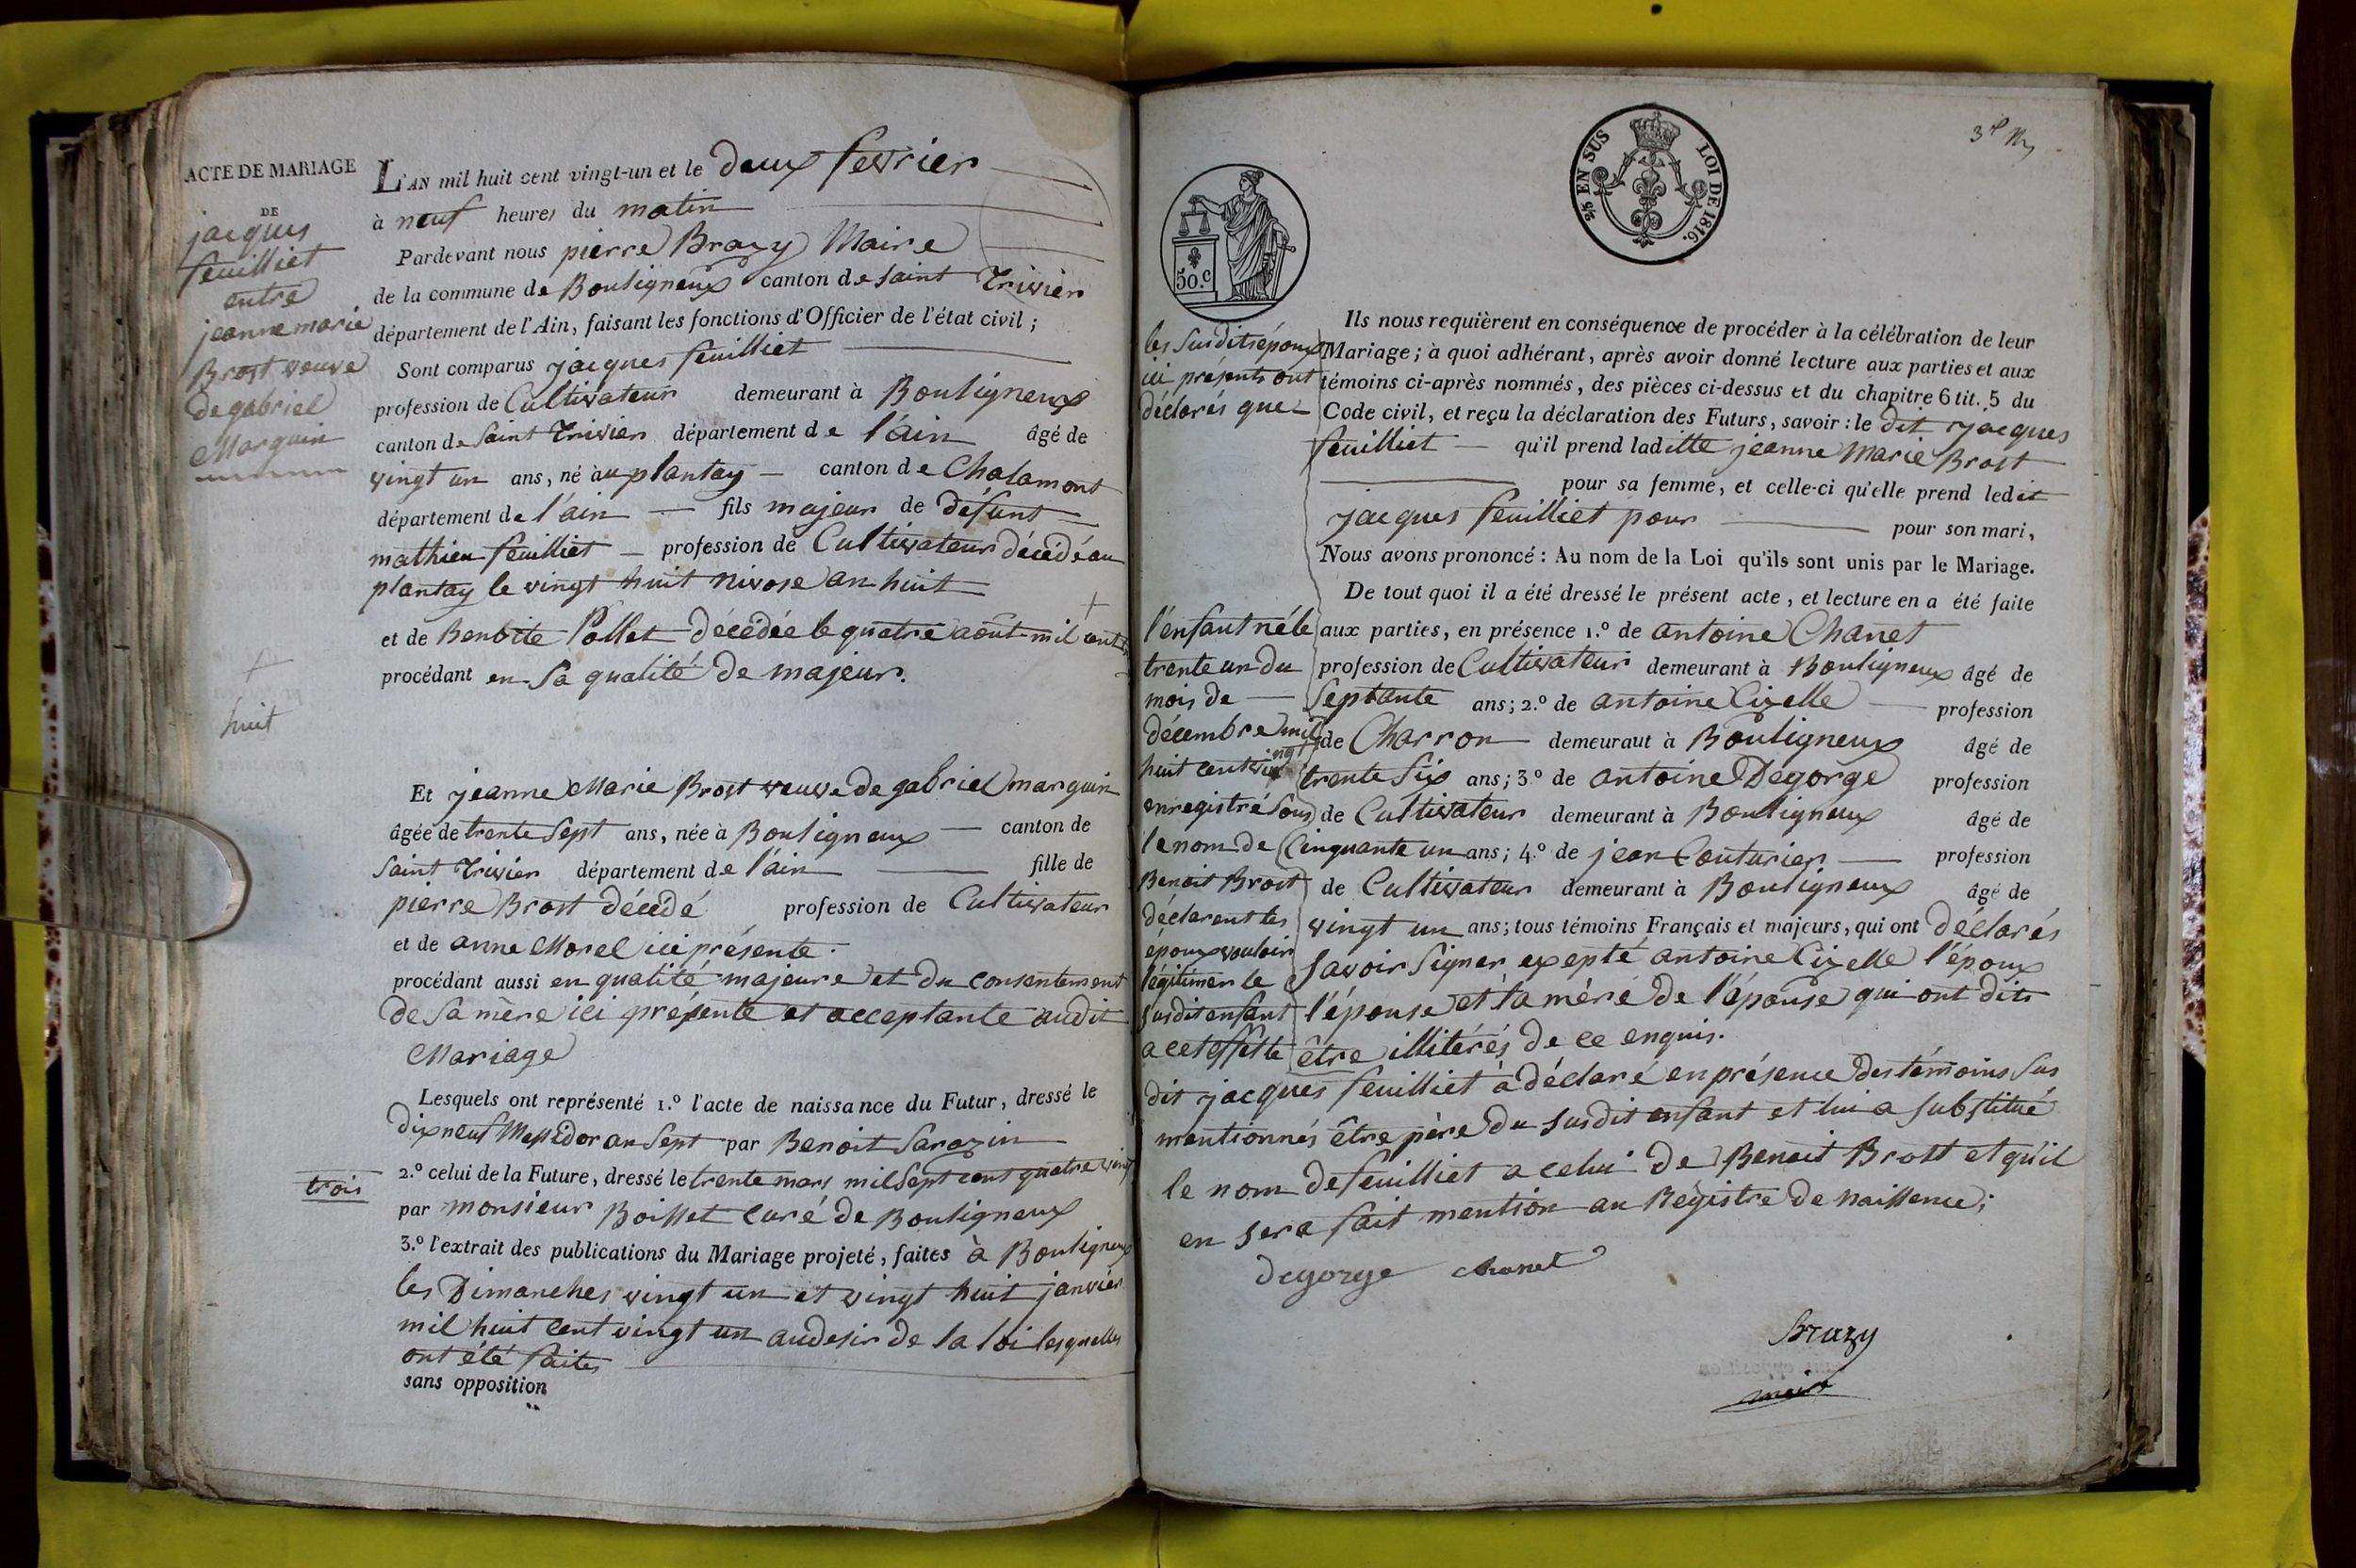 ACTE DE MARIAGE
DE
jacques
feuilliet
entre
jeanne marie
Brost veuve
de gabriel
Marguin
L'AN mil huit cent vingt-un et le deux fevrier
à neuf heures du matin
Pardevant nous pierre Brazy Maire
de la commune de Bouligneux canton de saint Trivier
département de l'Ain, faisant les fonctions d'Officier de l'état civil ;
Sont comparus jacques feuilliet
profession de Cultivateur demeurant à Bouligneux
canton de Saint Trivier département de l'ain âgé de
vingt un ans, né au plantay canton de Chalamont
département de l'ain fils majeur de défunt
mathieu feuilliet profession de Cultivateur décédé au
plantay le vingt huit nivose an huit
et de Benoite Pollet décédée le quatre août mil cent
procédant en sa qualité de majeur.
+
huit
Et jeanne Marie Brost veuve de gabriel marguin
âgée de trente sept ans, née à Bouligneux canton de
saint Trivier département de l'ain fille de
pierre Brost décédé profession de Cultivateur
et de anne Morel ici présente
procédant aussi en qualité majeure et du consentement
de sa mère ici présente et acceptante audit
Mariage
Lesquels ont représenté 1.° l'acte de naissance du Futur, dressé le
dix neuf Messidor an Sept par Benoit Sarazin
2.° celui de la Future, dressé le trente mars mil Sept cent quatre vingt
trois
par monsieur Boisset curé de Bouligneux
3.° l'extrait des publications du Mariage projeté, faites à Bouligneux
les Dimanches vingt un et vingt huit janvier
mil huit cent vingt un audesir de la loi lesquelles
ont été faites
sans opposition
50.C
25 EN SUS LOI DE 1816.
Ils nous requièrent en conséquence de procéder à la célébration de leur
Mariage ; à quoi adhérant, après avoir donné lecture aux parties et aux
témoins ci-après nommés, des pièces ci-dessus et du chapitre 6 tit. 5 du
Code civil, et reçu la déclaration des Futurs, savoir : le dit jacques
feuilliet qu'il prend laditte jeanne Marie Brost
pour sa femme, et celle-ci qu'elle prend ledit
jacques feuilliet pour pour son mari,
Nous avons prononcé : Au nom de la Loi qu'ils sont unis par le Mariage.
De tout quoi il a été dressé le présent acte, et lecture en a été faite
aux parties, en présence 1.° de antoine Chanet
profession de Cultivateur demeurant à Bouligneux âgé de
Septante ans ; 2.° de antoine Cizelle profession
de Charron demeuraut à Bouligneux âgé de
trente six ans ; 3° de antoine Degorge profession
de Cultivateur demeurant à Bouligneux âgé de
Cinquante un ans ; 4.° de jean Couturier profession
de Cultivateur demeurant à Bouligneux âgé de
vingt un ans ; tous témoins Français et majeurs, qui ont déclarés
savoir signer excepté antoine Cizelle l'époux
l'épouse et la mère de l'épouse qui ont dits
être illitérés de ce enquis.
les susdits époux
ici présents ont
déclarés que
l'enfant né le
trente un du
mois de
décembre mil
huit cent vingt
enregistré sous
le nom de
Benoit Brost
déclarent les
époux vouloir
légitimer le
susdit enfant
a cet effet le
dit jacques feuilliet à déclaré en présence des témoins sus
mentionnés être père du susdit enfant et lui a substitué
le nom de feuilliet a celui de Benoit Brost et qu'il
en sera fait mention au Régistre de naissence ;
degorge chanet
Brazy
maire